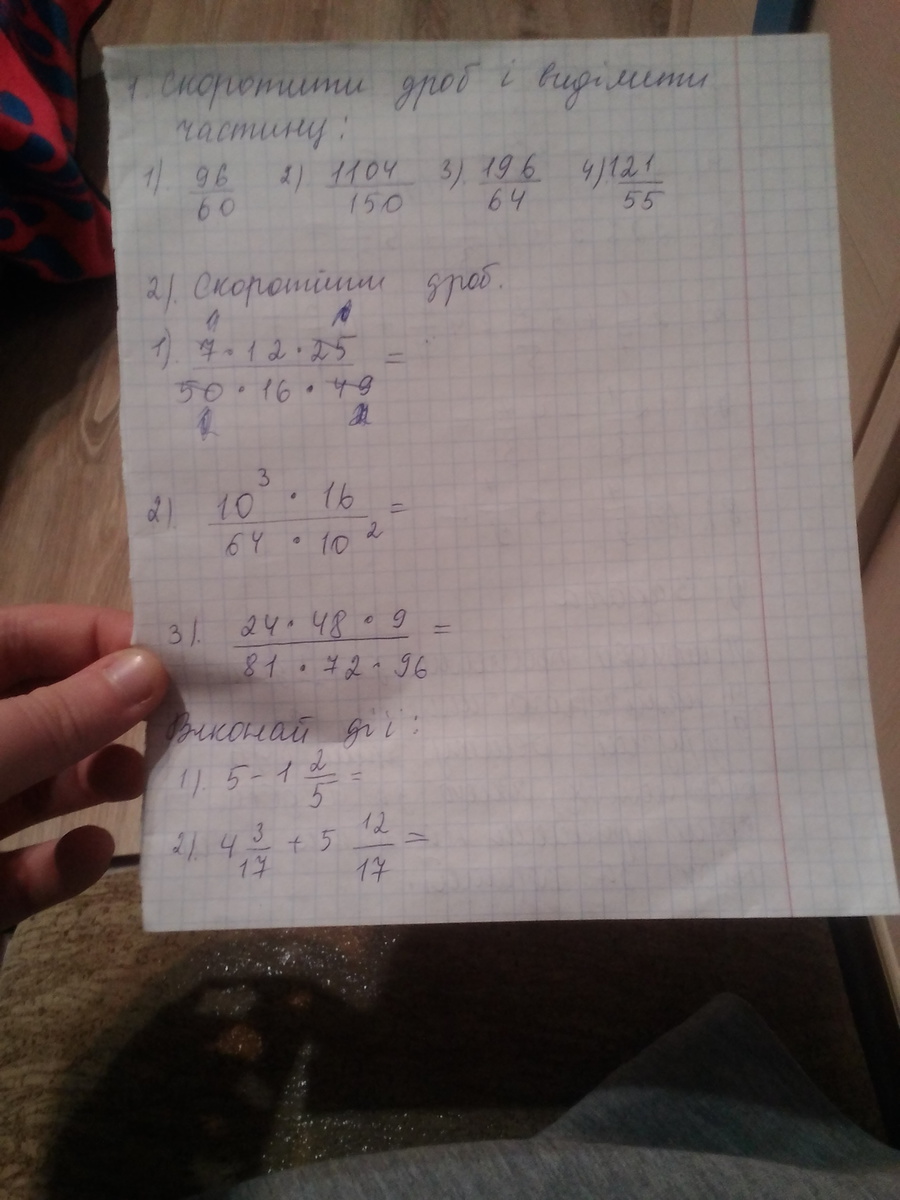 1. Скоротити дроб і виділити
частину:
1). 96/60 2) 1104/150 3). 196/64 4). 121/55
2). Скоротити дроб.
1). 7 · 12 · 25 / 50 · 16 · 49 =
2) 10³ · 16 / 64 · 10² =
3). 24 · 48 · 9 / 81 · 72 · 96 =
Виконай дії:
1). 5 - 1 2/5 =
2). 4 3/17 + 5 12/17 =